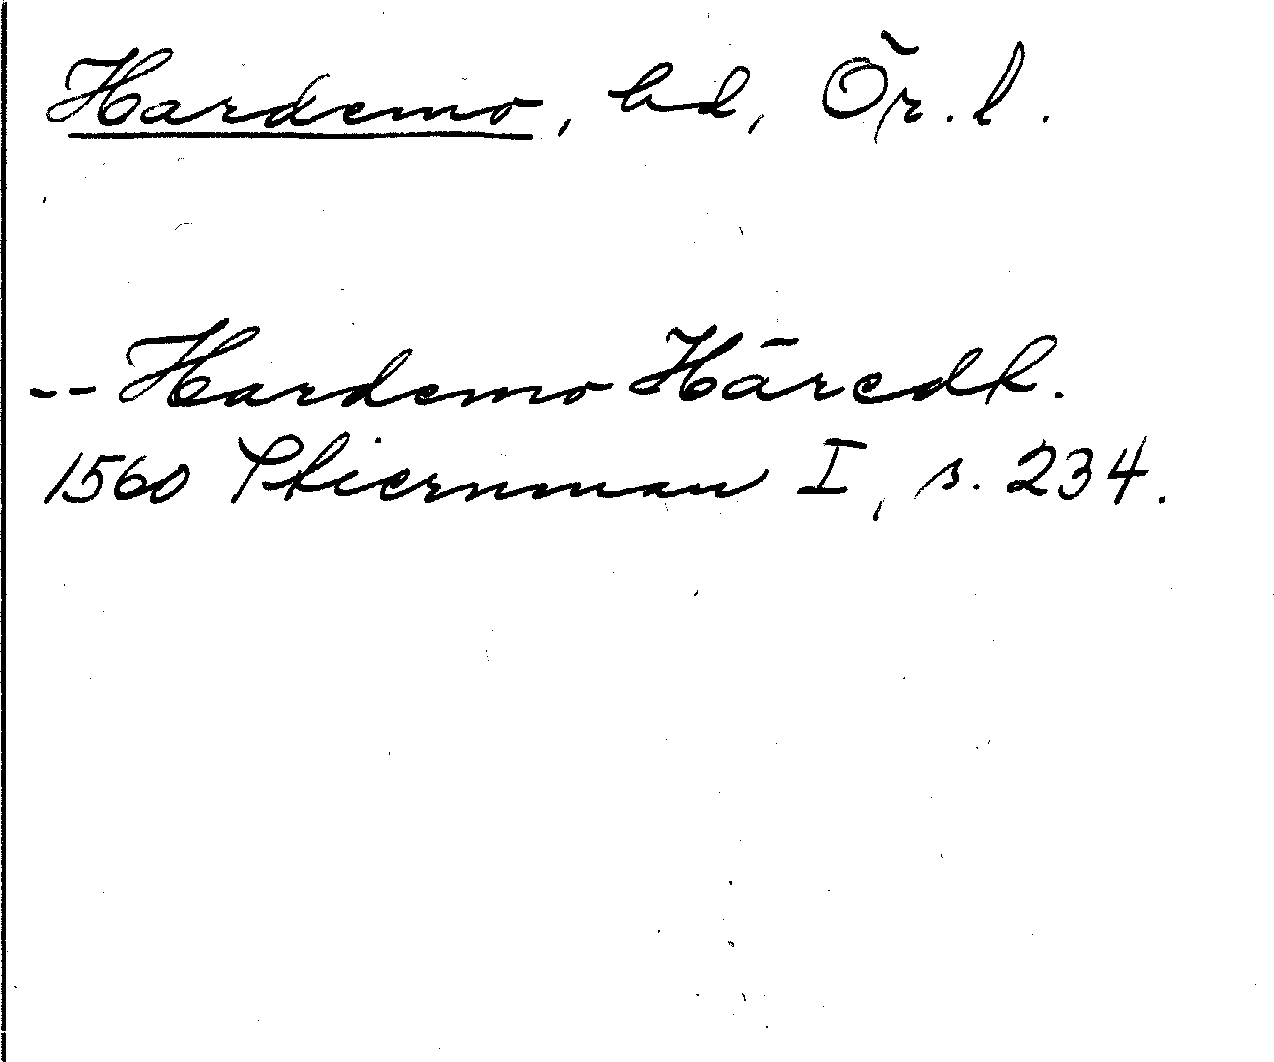 Hardemo, hd, Ör. l.
-- Hardemo Häredh.
1560 Stiernman I, s. 234.